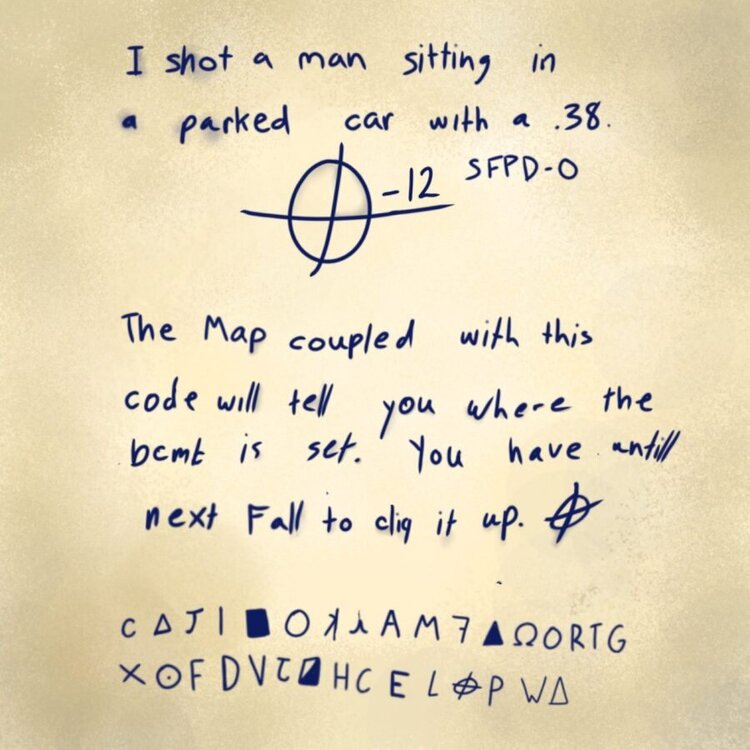 I shot a man sitting in
a parked car with a .38.
-12 SFPD-0
The Map coupled with this
code will tell you where the
bcmt is set. You have untill
next Fall to dig it up.
C Δ J I ■ O ʞ ⅄ A M 7 ▲ Ω O R T G
X ⊙ F D V Ʇ ◪ H C E L ⌽ P W Δ